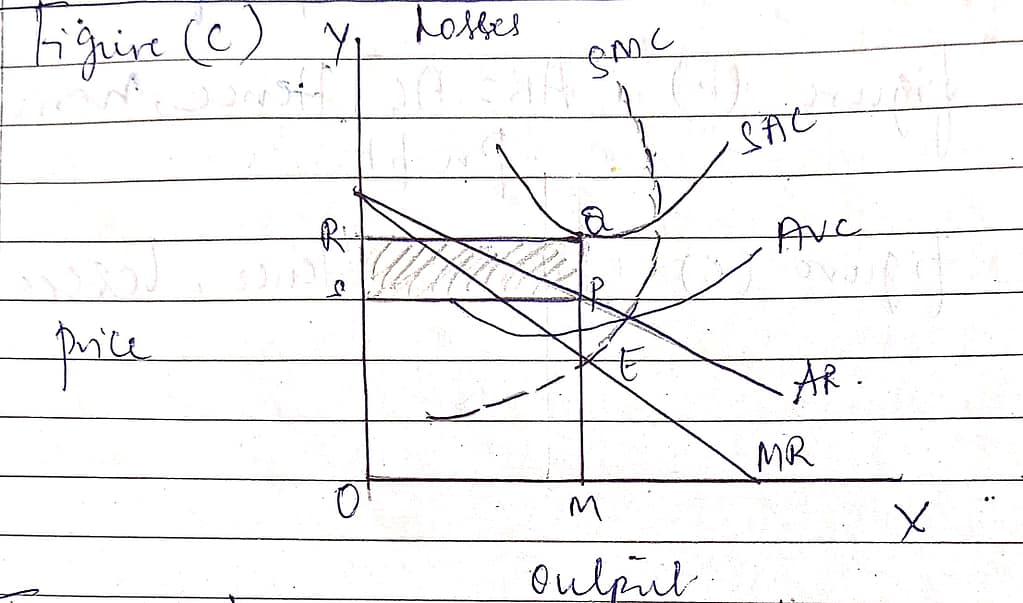 Figure (C)
Y
Losses
SMC
SAC
R
Q
AVC
S
P
Price
E
AR.
MR
O
M
X
Output